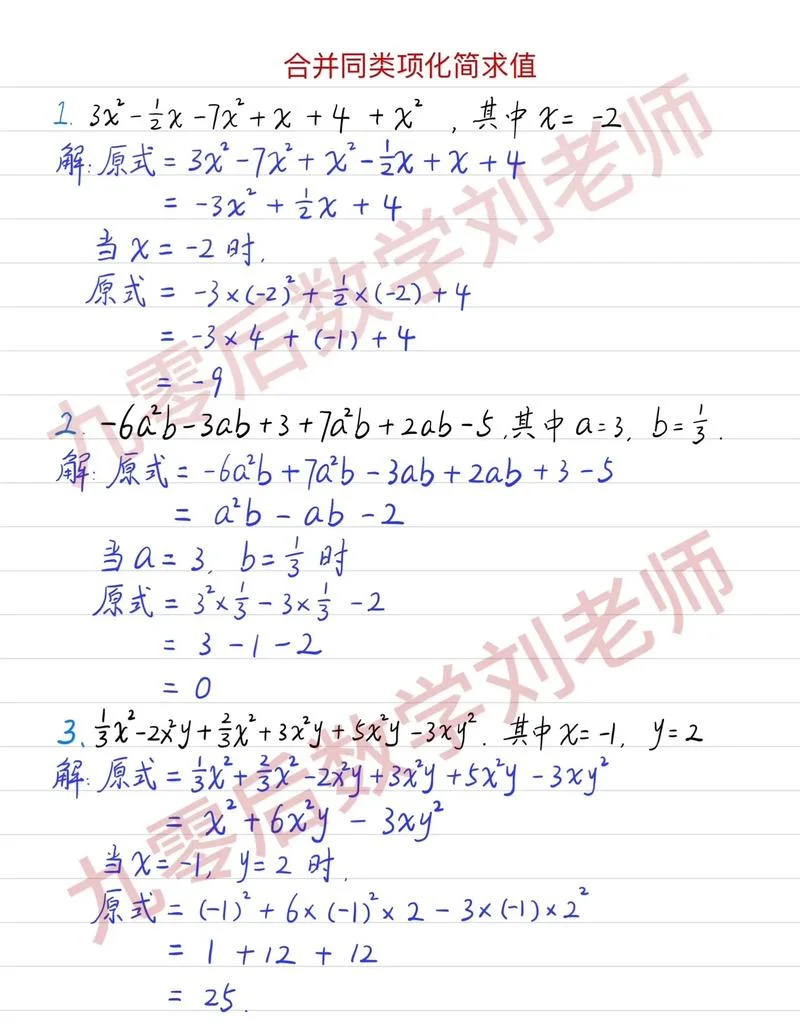 合并同类项化简求值
1. 3x² - ½x - 7x² + x + 4 + x² , 其中 x = -2
解: 原式 = 3x² - 7x² + x² - ½x + x + 4
= -3x² + ½x + 4
当 x = -2 时,
原式 = -3×(-2)² + ½×(-2) + 4
= -3×4 + (-1) + 4
= -9
2. -6a²b - 3ab + 3 + 7a²b + 2ab - 5 , 其中 a = 3, b = ⅓ .
解: 原式 = -6a²b + 7a²b - 3ab + 2ab + 3 - 5
= a²b - ab - 2
当 a = 3, b = ⅓ 时
原式 = 3²×⅓ - 3×⅓ - 2
= 3 - 1 - 2
= 0
3、⅓x² - 2x²y + ⅔x² + 3x²y + 5x²y - 3xy² . 其中 x = -1, y = 2
解: 原式 = ⅓x² + ⅔x² - 2x²y + 3x²y + 5x²y - 3xy²
= x² + 6x²y - 3xy²
当 x = -1, y = 2 时,
原式 = (-1)² + 6×(-1)²×2 - 3×(-1)×2²
= 1 + 12 + 12
= 25.
九零后数学刘老师
九零后数学刘老师